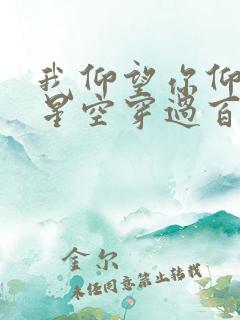 我仰望你仰
星空穿过百
金尔
未经同意禁止转载